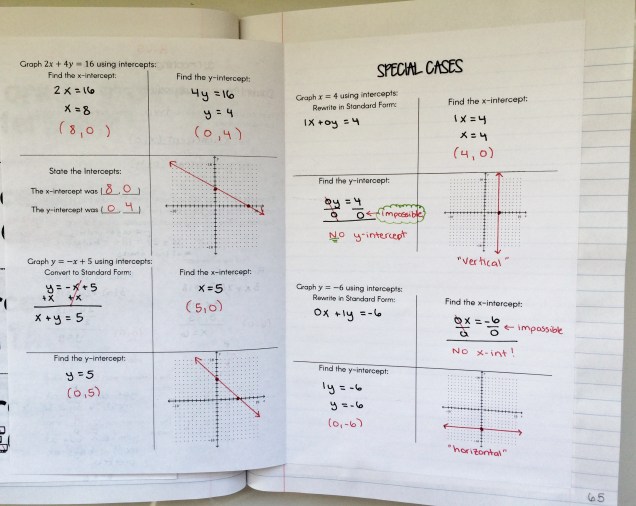 Graph 2x + 4y = 16 using intercepts:
Find the x-intercept:
2x = 16
x = 8
(8, 0)
Find the y-intercept:
4y = 16
y = 4
(0, 4)
State the Intercepts:
The x-intercept was (8, 0)
The y-intercept was (0, 4)
Graph y = -x + 5 using intercepts:
Convert to Standard Form:
y = -x + 5
+x +x
x + y = 5
Find the x-intercept:
x = 5
(5, 0)
Find the y-intercept:
y = 5
(0, 5)
SPECIAL CASES
Graph x = 4 using intercepts:
Rewrite in Standard Form:
1x + 0y = 4
Find the x-intercept:
1x = 4
x = 4
(4, 0)
Find the y-intercept:
0y = 4
0 0 ← impossible
NO y-intercept
"vertical"
Graph y = -6 using intercepts:
Rewrite in Standard Form:
0x + 1y = -6
Find the x-intercept:
0x = -6
0 0 ← impossible
NO x-int!
Find the y-intercept:
1y = -6
y = -6
(0, -6)
"horizontal"
65